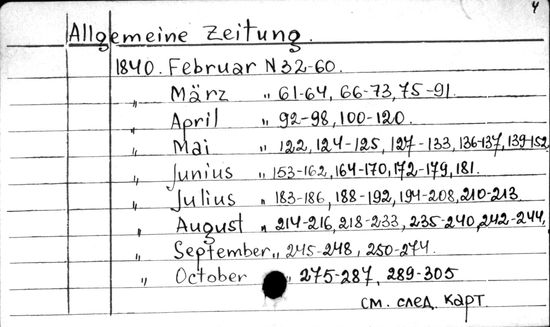 4
Allgemeine Zeitung.
1840. Februar N 32-60.
„ März „ 61-64, 66-73, 75-91.
„ April „ 92-98, 100-120.
„ Mai „ 122, 124-125, 127-133, 136-137, 139-152
„ Junius „ 153-162, 164-170, 172-179, 181.
„ Julius „ 183-186, 188-192, 194-208, 210-213
„ August „ 214-216, 218-233, 235-240, 242-244,
„ September „ 245-248, 250-274.
„ October „ 275-287, 289-305
см. след. карт.